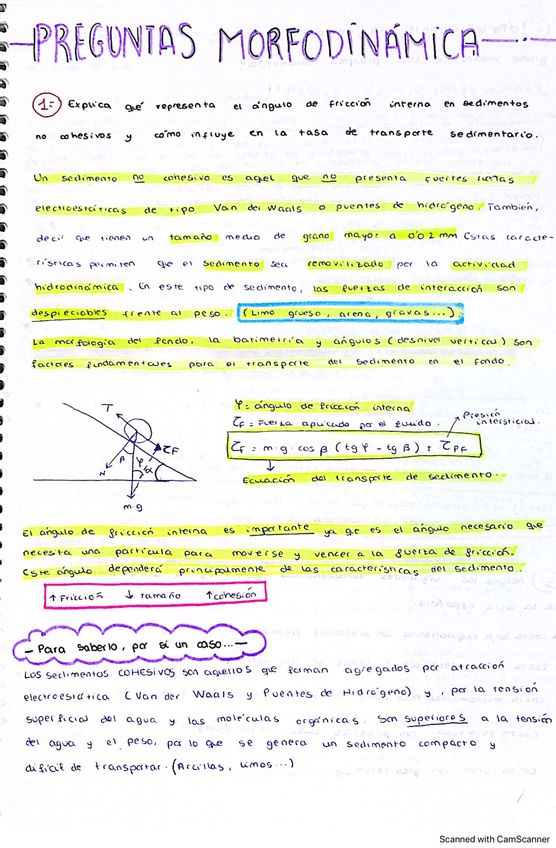 PREGUNTAS MORFODINÁMICA
1:- Explica qué representa el ángulo de fricción interna en sedimentos
no cohesivos y cómo influye en la tasa de transporte sedimentario.
Un sedimento no cohesivo es aquel que no presenta fuertes fuerzas
electroestáticas de tipo Van der Waals o puentes de hidrógeno. También,
decir que tienen un tamaño medio de grano mayor a 0'02 mm Estas caracte-
rísticas permiten que el sedimento sea removilizado por la actividad
hidrodinámica. En este tipo de sedimento, las fuerzas de interacción son
despreciables frente al peso. (Limo grueso, arena, gravas...).
La morfología del fondo, la batimetría y ángulos (desnivel vertical) son
factores fundamentales para el transporte del sedimento en el fondo.
φ = ángulo de fricción interna
τF = Fuerza aplicada por el fluido.
Presión
intersticial.
τF = m·g·cos β (tg φ - tg β) + τPF
Ecuación del transporte de sedimento.
T
τF
β
φ
α
N
m g
El ángulo de fricción interna es importante ya que es el ángulo necesario que
necesita una partícula para moverse y vencer a la fuerza de fricción.
Este ángulo dependerá principalmente de las características del sedimento.
↑ Fricción ↓ tamaño ↑ cohesión
- Para saberlo, por si un caso... -
Los sedimentos COHESIVOS son aquellos que forman agregados por atracción
electroestática (Van der Waals y Puentes de Hidrógeno) y, por la tensión
superficial del agua y las moléculas orgánicas. Son superiores a la tensión
del agua y el peso, por lo que se genera un sedimento compacto y
difícil de transportar. (Arcillas, limos...)
Scanned with CamScanner